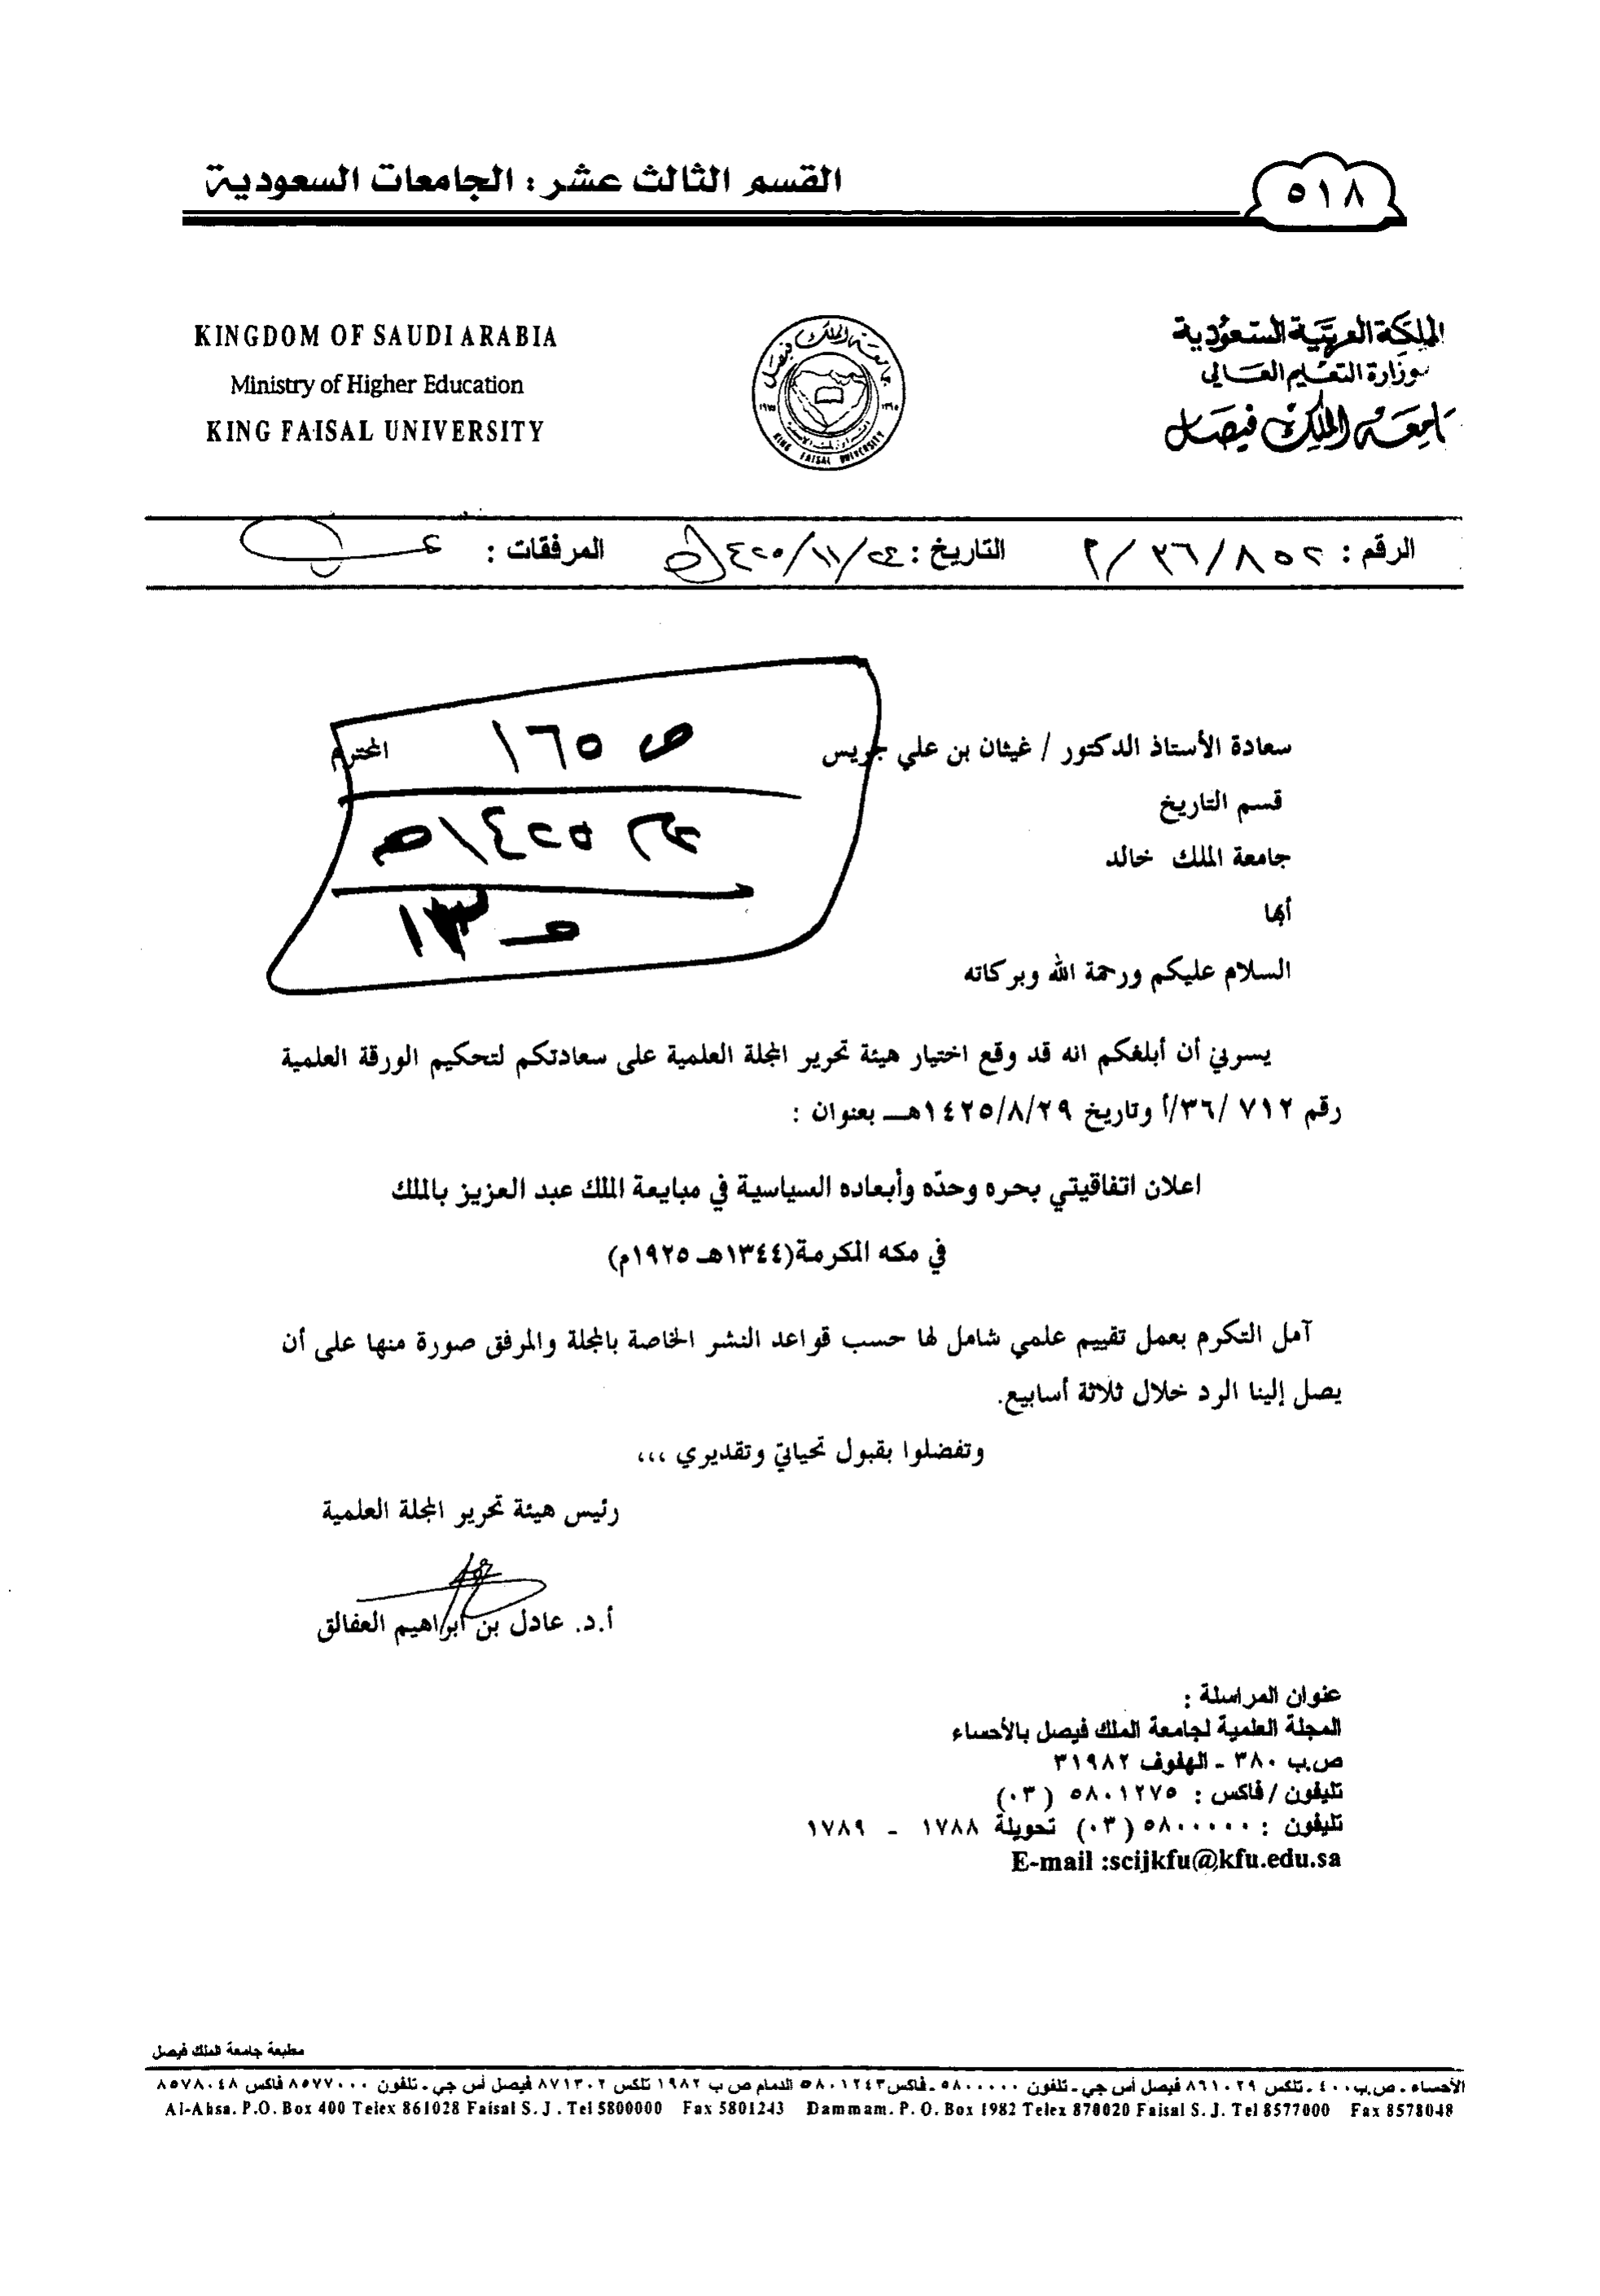 القسم الثالث عشر : الجامعات السعودية
٥١٨
KINGDOM OF SAUDI ARABIA
Ministry of Higher Education
KING FAISAL UNIVERSITY
المملكة العربية السعودية
وزارة التعليم العالي
جامعة الملك فيصل
جامعة الملك فيصل
KING FAISAL UNIVERSITY
الرقم : ٨٥٢/٣٦/
التاريخ : ٢٤/١١/٤٢٥هـ
المرفقات :
ص ١٦٥
١٤٢٥هـ
١٣
سعادة الأستاذ الدكتور / غيثان بن علي جريس المحترم
قسم التاريخ
جامعة الملك خالد
أبها
السلام عليكم ورحمة الله وبركاته
يسرني أن أبلغكم انه قد وقع اختيار هيئة تحرير المجلة العلمية على سعادتكم لتحكيم الورقة العلمية
رقم ٧١٢ /٣٦/أ وتاريخ ١٤٢٥/٨/٢٩هــ بعنوان :
اعلان اتفاقيتي بحره وحدّه وأبعاده السياسية في مبايعة الملك عبد العزيز بالملك
في مكه المكرمة(١٣٤٤هـ ١٩٢٥م)
آمل التكرم بعمل تقييم علمي شامل لها حسب قواعد النشر الخاصة بالمجلة والمرفق صورة منها على أن
يصل إلينا الرد خلال ثلاثة أسابيع.
وتفضلوا بقبول تحياتي وتقديري ،،،
رئيس هيئة تحرير المجلة العلمية
أ.د. عادل بن ابراهيم العفالق
عنوان المراسلة :
المجلة العلمية لجامعة الملك فيصل بالأحساء
ص.ب ٣٨٠ - الهفوف ٣١٩٨٢
تليفون / فاكس : ٥٨٠١٢٧٥ (٠٣)
تليفون : ٥٨٠٠٠٠٠ (٠٣) تحويلة ١٧٨٨ - ١٧٨٩
E-mail :scijkfu@kfu.edu.sa
مطبعة جامعة الملك فيصل
الأحساء ـ ص.ب ٤٠٠ ـ تلكس ٨٦١٠٢٩ فيصل أس جي ـ تلفون ٥٨٠٠٠٠٠ ـ فاكس ٥٨٠١٢٤٣ الدمام ص ب ١٩٨٢ تلكس ٨٧١٣٠٢ فيصل أس جي ـ تلفون ٨٥٧٧٠٠٠ فاكس ٨٥٧٨٠٤٨
Al-Ahsa. P.O. Box 400 Telex 861028 Faisal S. J . Tel 5800000 Fax 5801243 Dammam. P. O. Box 1982 Telex 870020 Faisal S. J. Tel 8577000 Fax 8578048